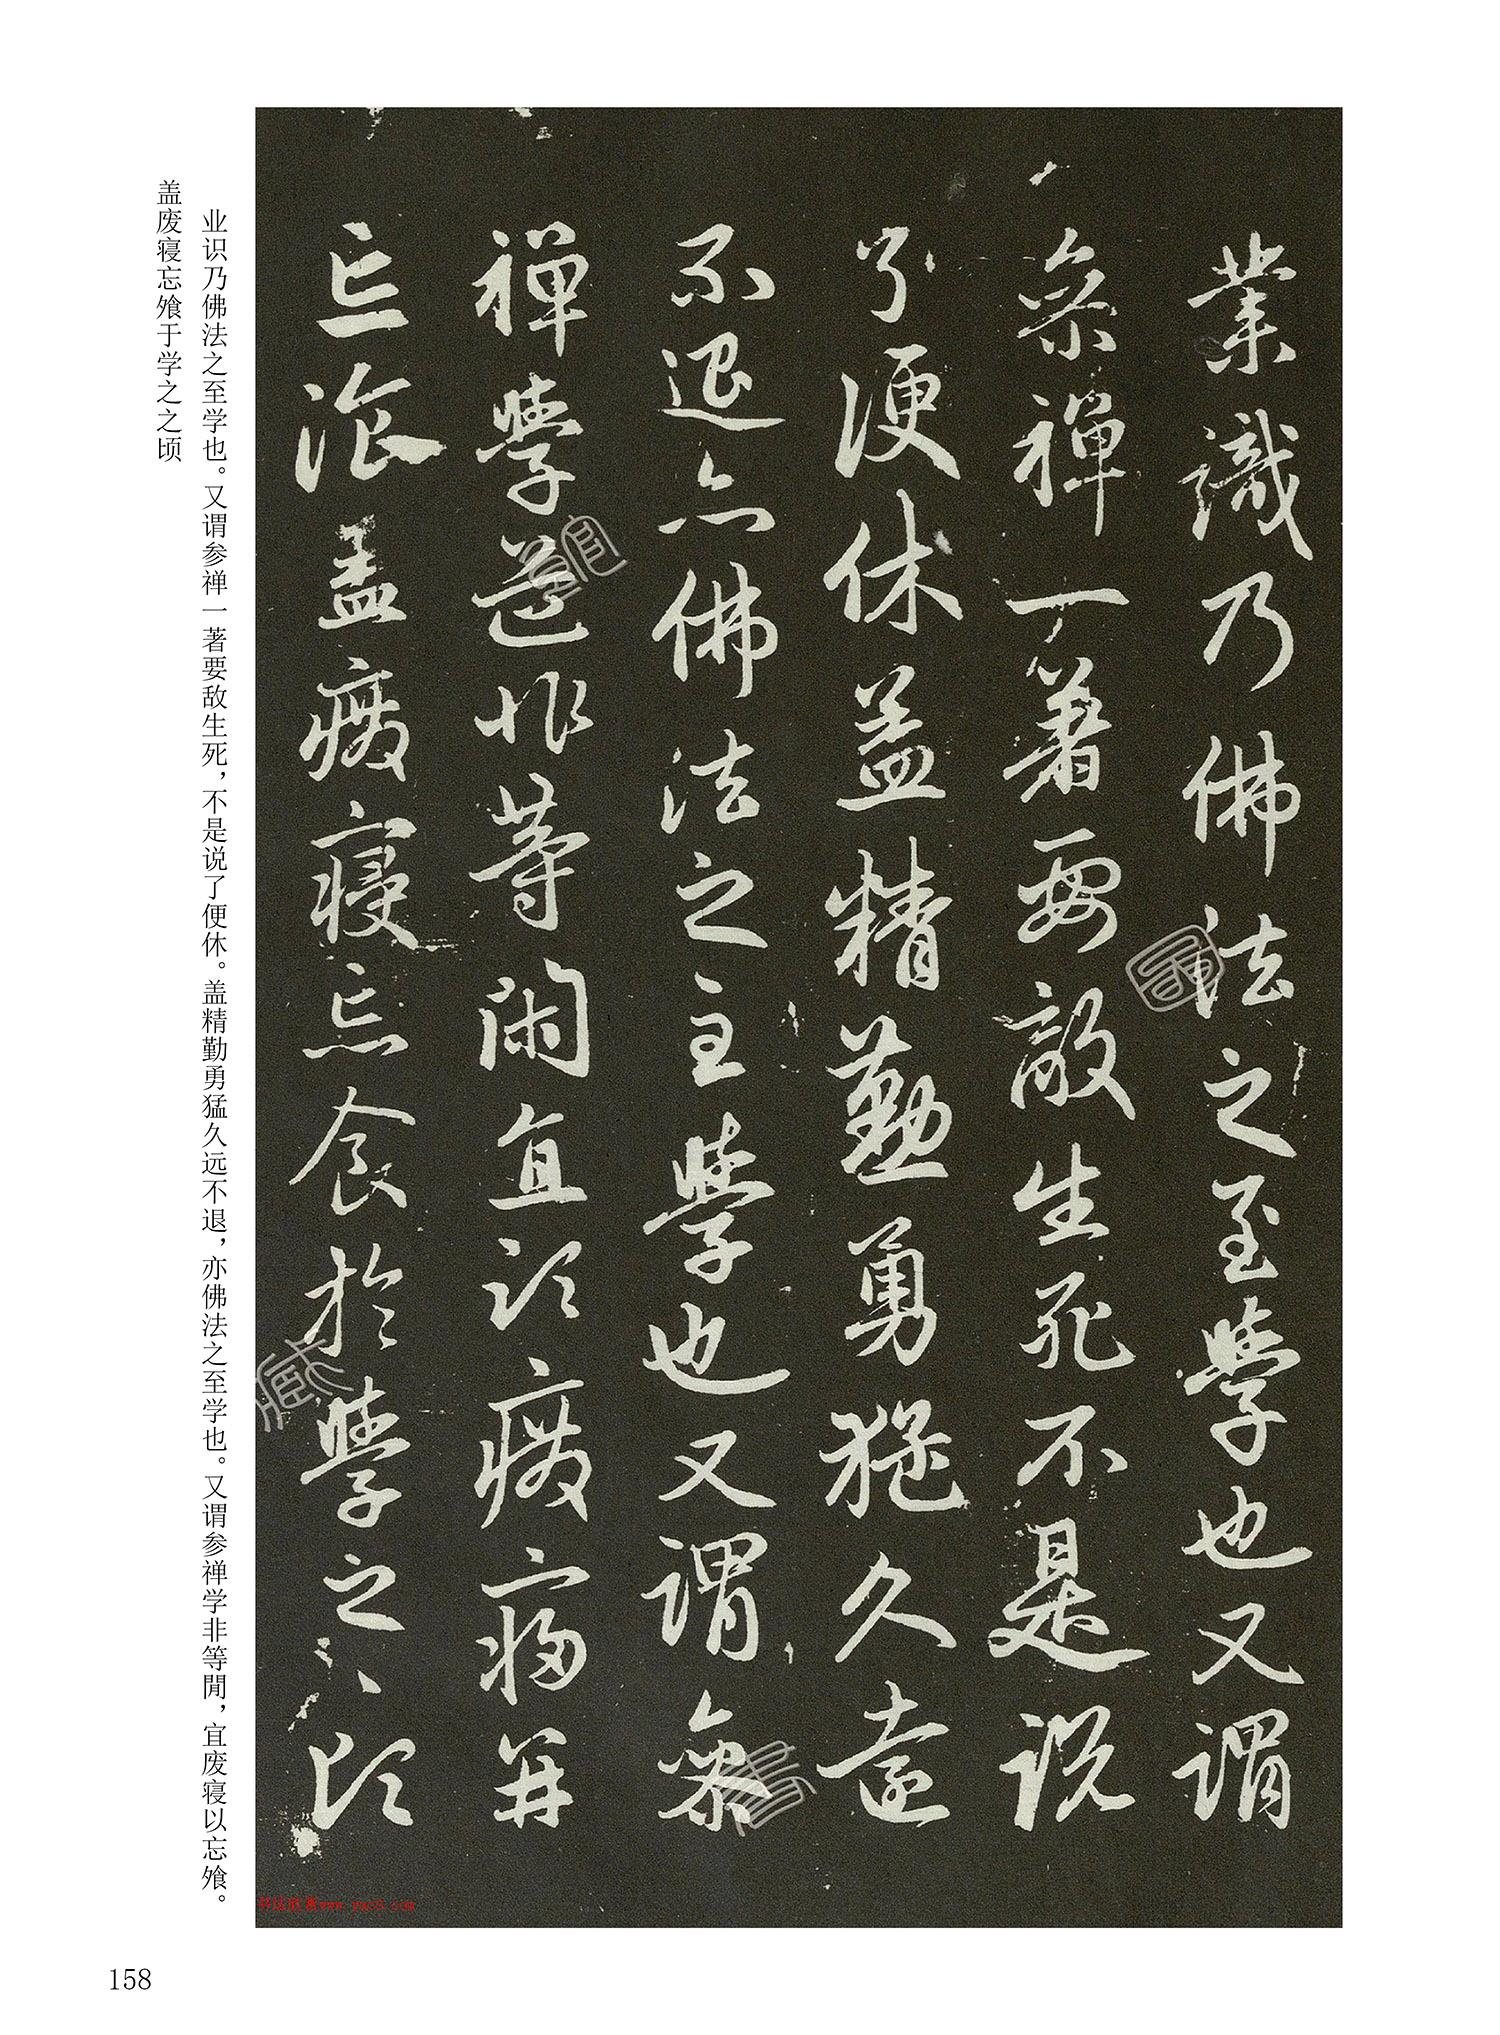 業識乃佛法之至學也又謂
叅禪一著要敵生死不是説
了便休盖精勤勇猛久遠
不退亦佛法之至學也又謂叅
禪學道非等閑直須癈寤并
忘飡盖癈寢忘食於學之之頃
业识乃佛法之至学也。又谓参禅一著要敌生死，不是说了便休。盖精勤勇猛久远不退，亦佛法之至学也。又谓参禅学非等閒，宜废寝以忘飧。
盖废寝忘飧于学之之顷
158